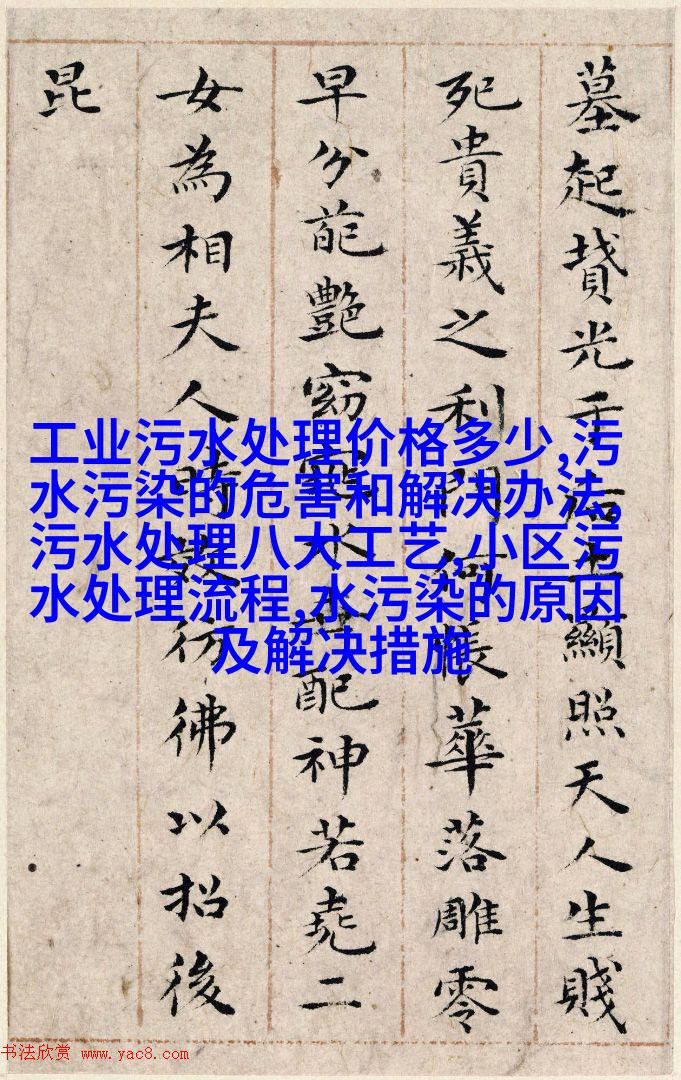 墓起墳光于后土顯照天人生賤
死貴義之利門何悵華落雕零
早分葩豔窈配神若堯二
女為相夫人時效彷彿以招後
昆
工业污水处理价格多少,污
水污染的危害和解决办法,
污水处理八大工艺,小区污
水处理流程,水污染的原因
及解决措施
书法欣赏 www.yac8.com